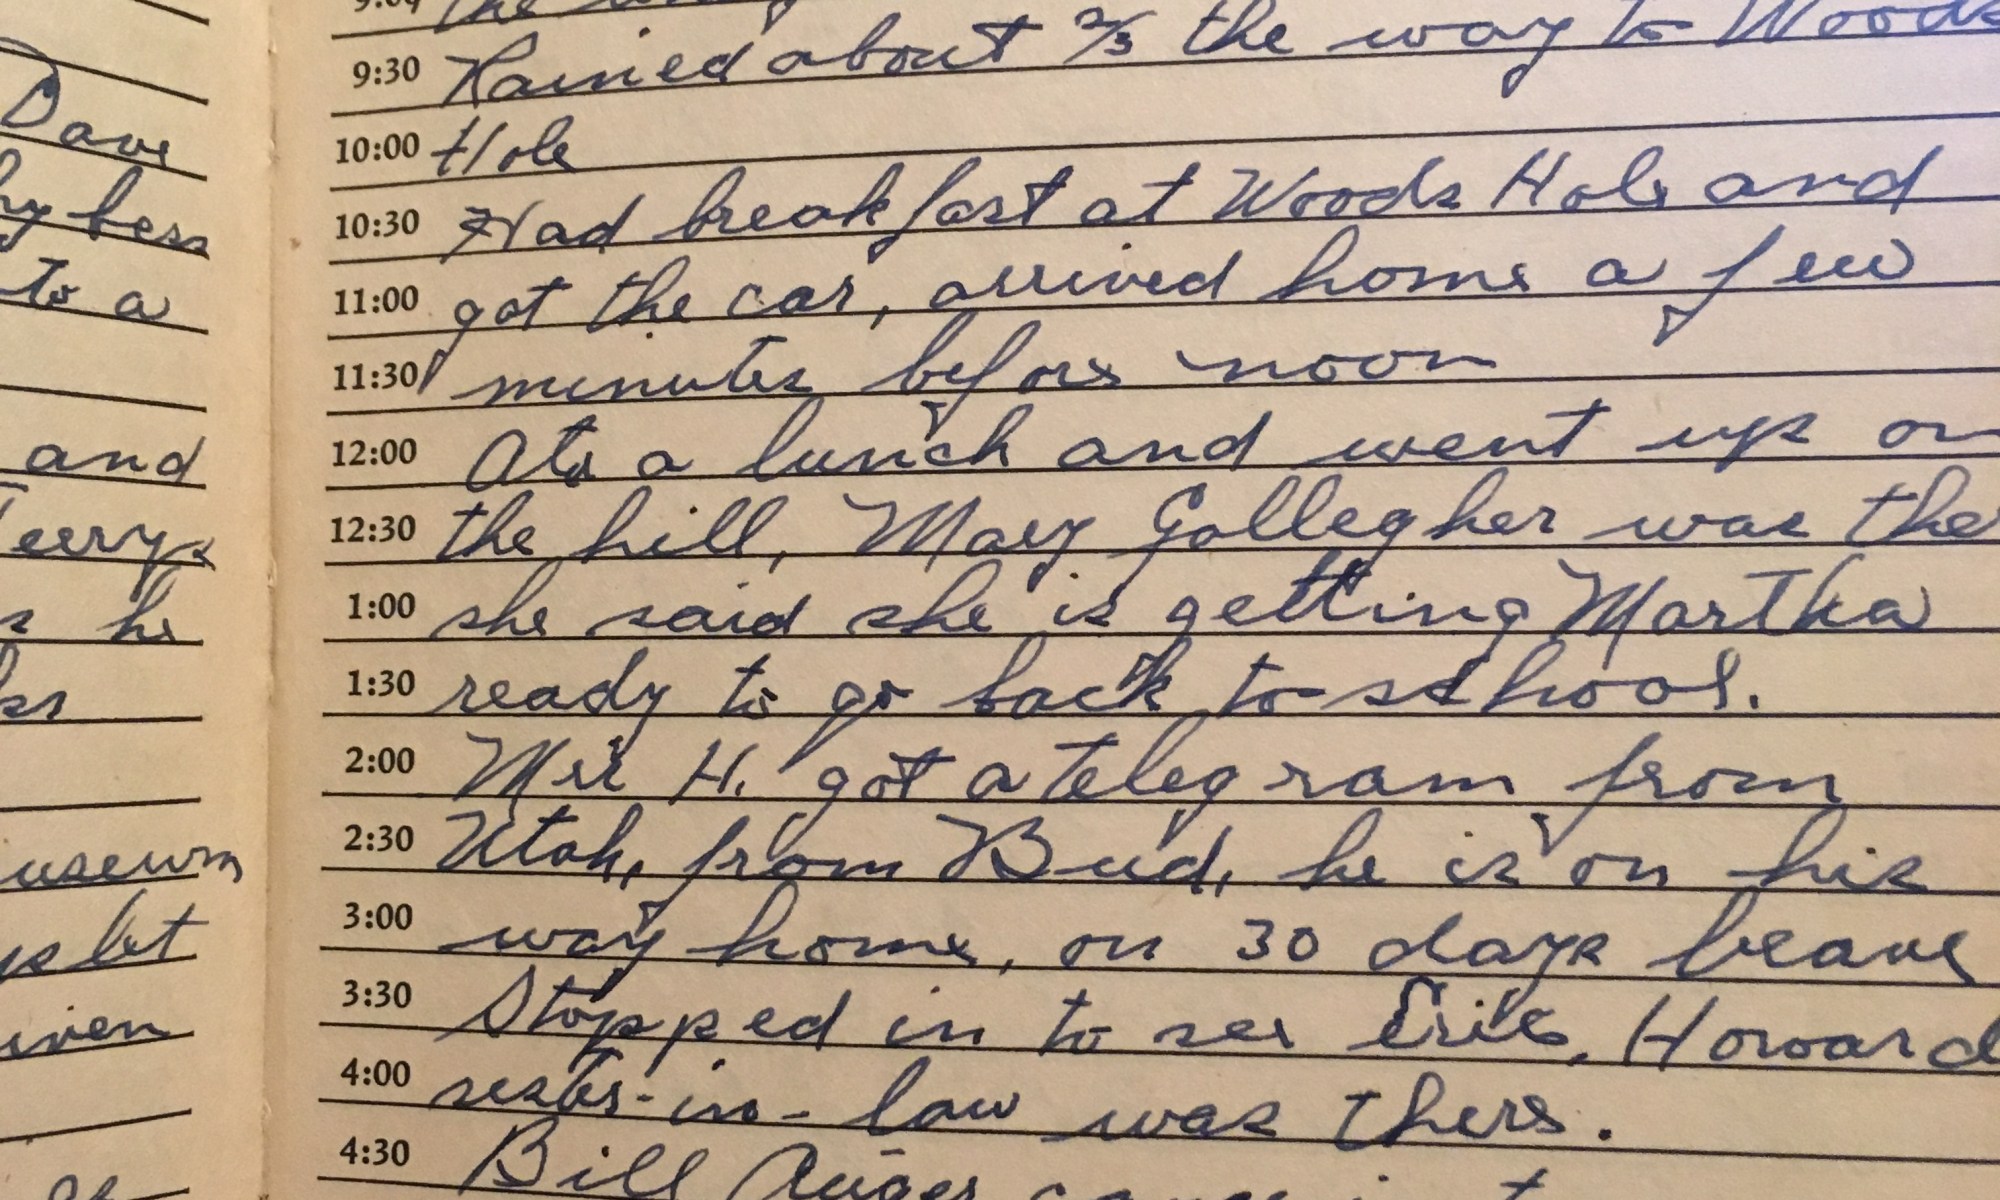 Dave
bess
to a
and
Terrys
he
useum
let
iven
9:30 Rained about 2/3 the way to Woods
10:00 Hole
10:30 Had breakfast at Woods Hole and
11:00 got the car, arrived home a few
11:30 minutes before noon
12:00 Ate a lunch and went up on
12:30 the hill, Mary Gallegher was the
1:00 she said she is getting Martha
1:30 ready to go back to school.
2:00 Mrs H. got a telegram from
2:30 Utah, from Bud, he is on his
3:00 way home, on 30 days leave
3:30 Stopped in to see Eric, Howard
4:00 sister-in-law was there.
4:30 Bill Auger came